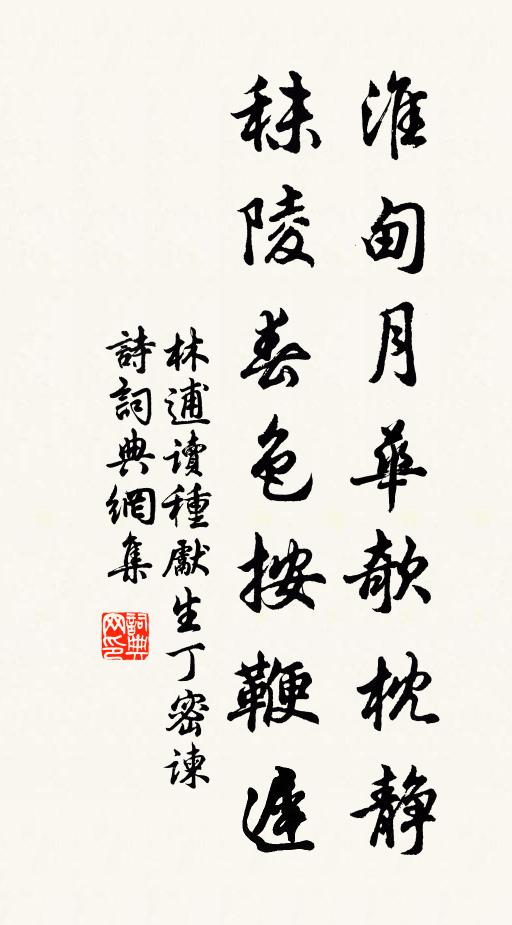 淮甸月華欹枕静
秣陵春色按鞭遲
林逋讀種獻生丁密諫
詩詞典網集
詞典
网印